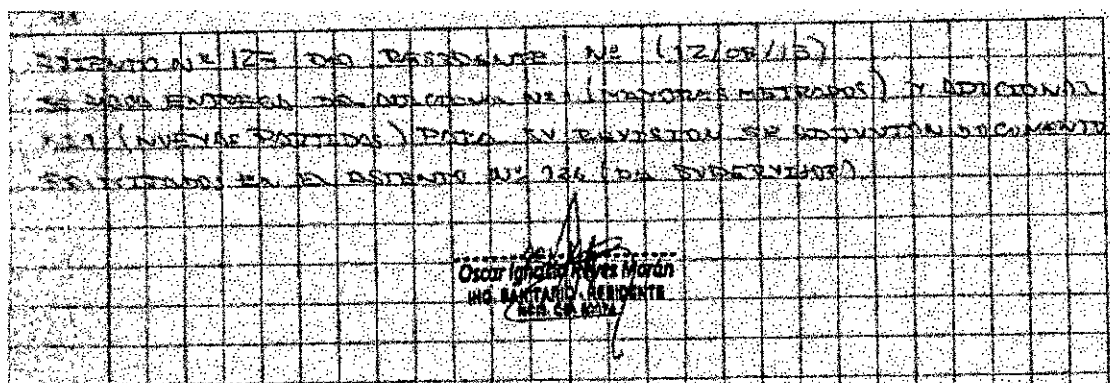 ASIENTO Nº 125 DEL RESIDENTE Nº (12/08/15)
SE HACE ENTREGA DEL ADICIONAL Nº1 (MAYORES METRADOS) Y ADICIONAL
Nº1 (NUEVAS PARTIDAS) PARA SU REVISION SE ADJUNTAN DOCUMENTO
SOLICITADOS EN EL ASIENTO Nº 124 (DEL SUPERVISOR)
Oscar Ignacio Reyes Morán
ING. SANITARIO - RESIDENTE
REG. CIP